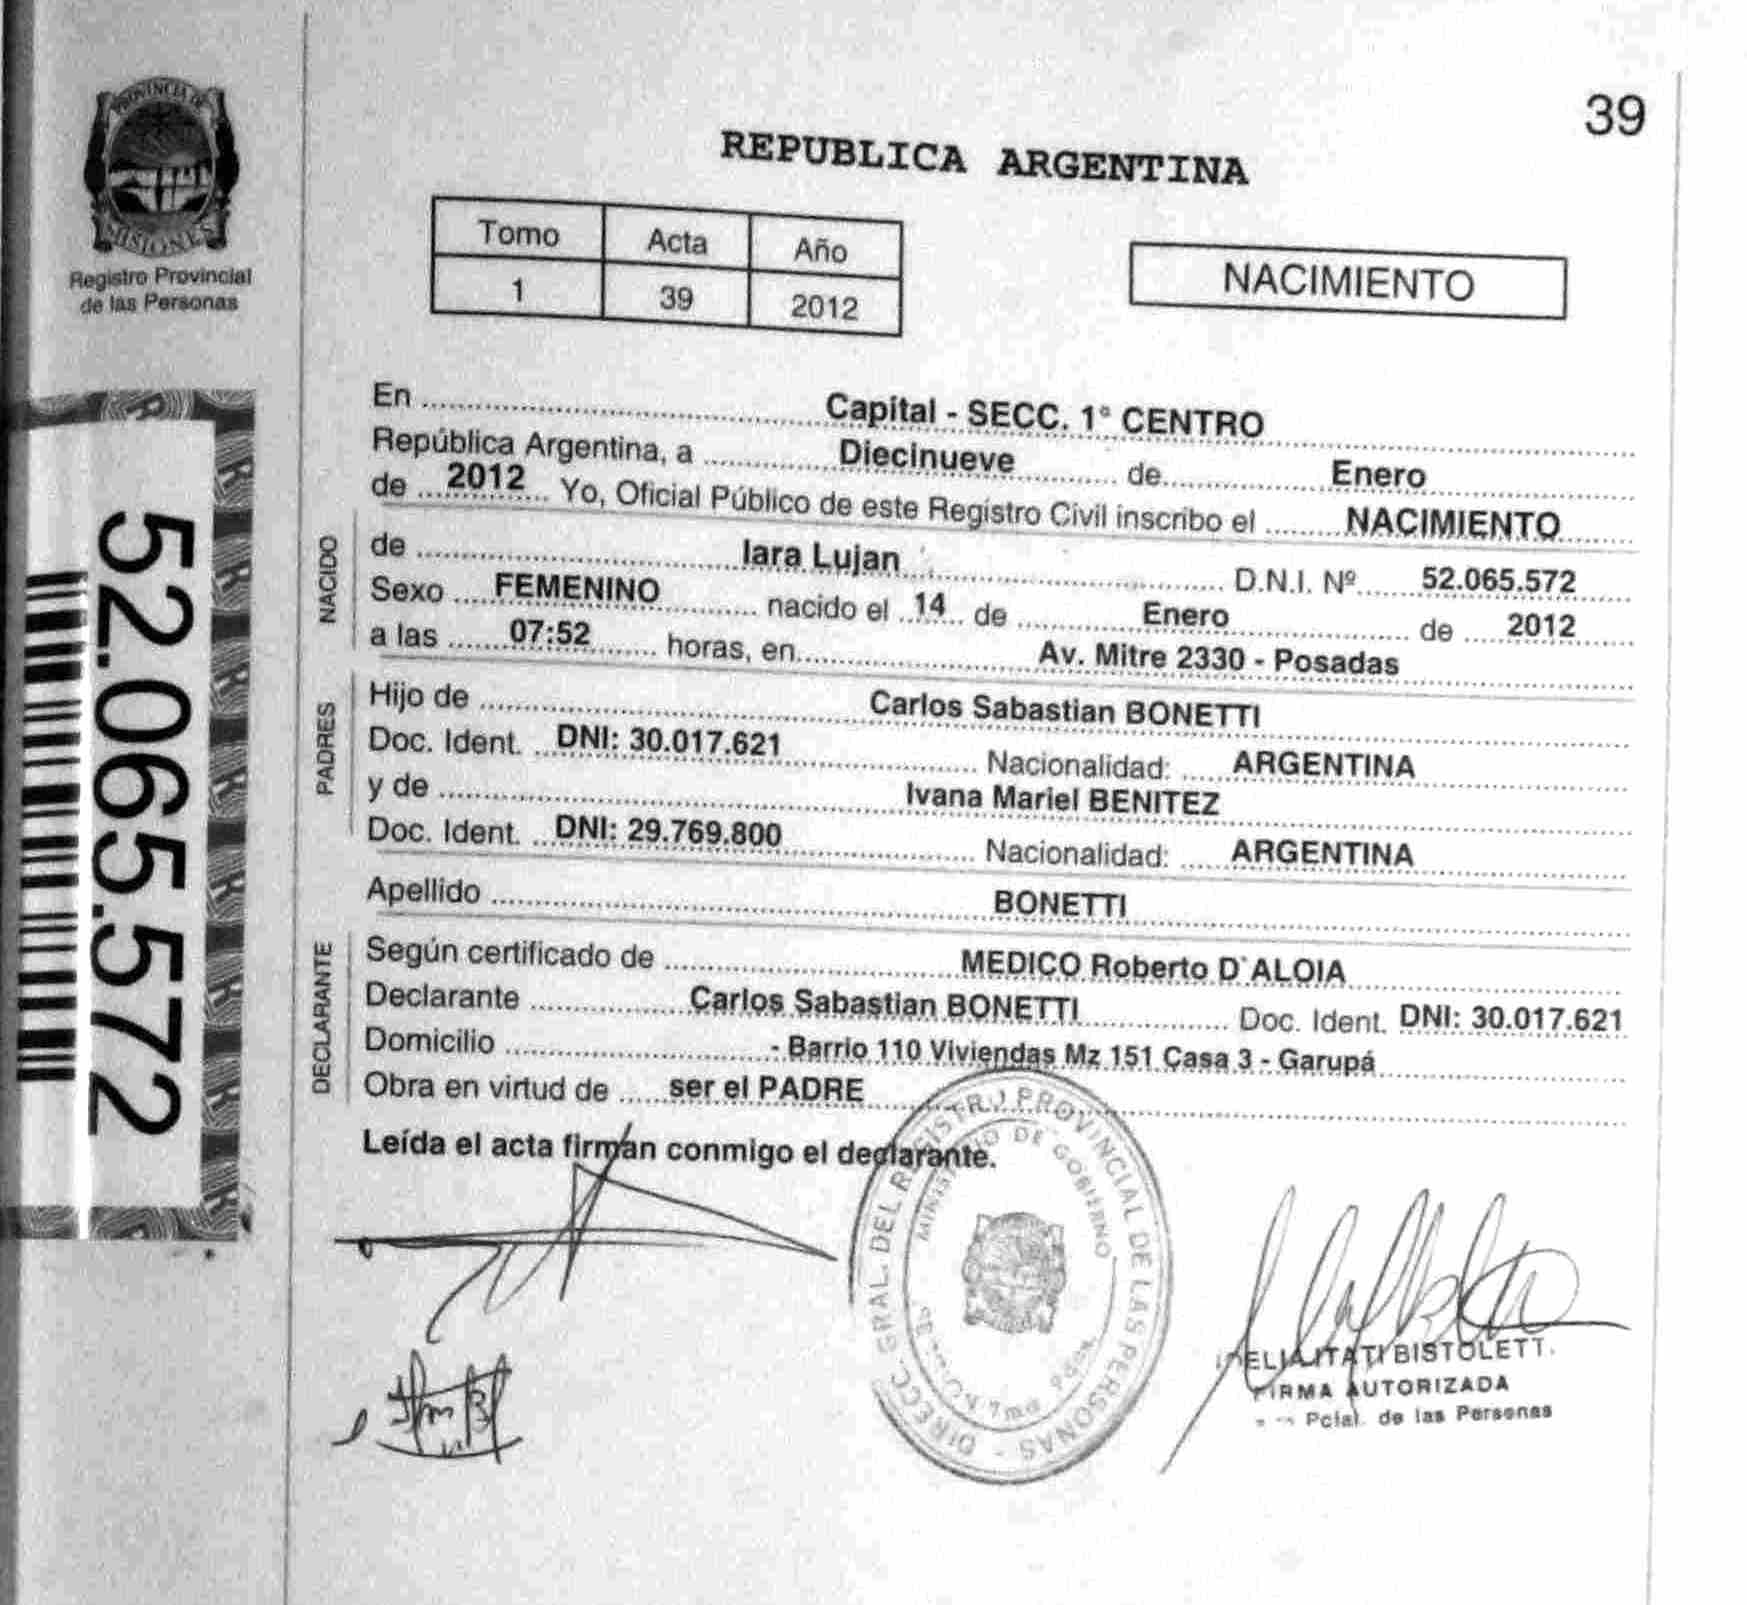 39
REPUBLICA ARGENTINA
PROVINCIA DE
MISIONES
Registro Provincial
de las Personas
Tomo Acta Año
1 39 2012
NACIMIENTO
52.065.572
En Capital - SECC. 1° CENTRO
República Argentina, a Diecinueve de Enero
de 2012 Yo, Oficial Público de este Registro Civil inscribo el NACIMIENTO
NACIDO
de Iara Lujan D.N.I. Nº 52.065.572
Sexo FEMENINO nacido el 14 de Enero de 2012
a las 07:52 horas, en Av. Mitre 2330 - Posadas
PADRES
Hijo de Carlos Sabastian BONETTI
Doc. Ident. DNI: 30.017.621 Nacionalidad: ARGENTINA
y de Ivana Mariel BENITEZ
Doc. Ident. DNI: 29.769.800 Nacionalidad: ARGENTINA
Apellido BONETTI
DECLARANTE
Según certificado de MEDICO Roberto D`ALOIA
Declarante Carlos Sabastian BONETTI Doc. Ident. DNI: 30.017.621
Domicilio - Barrio 110 Viviendas Mz 151 Casa 3 - Garupá
Obra en virtud de ser el PADRE
Leída el acta firman conmigo el declarante.
DIRECC. GRAL. DEL REGISTRO PROVINCIAL DE LAS PERSONAS -
MINISTERIO DE GOBIERNO
ITATI BISTOLETT
FIRMA AUTORIZADA
Pcial. de las Personas